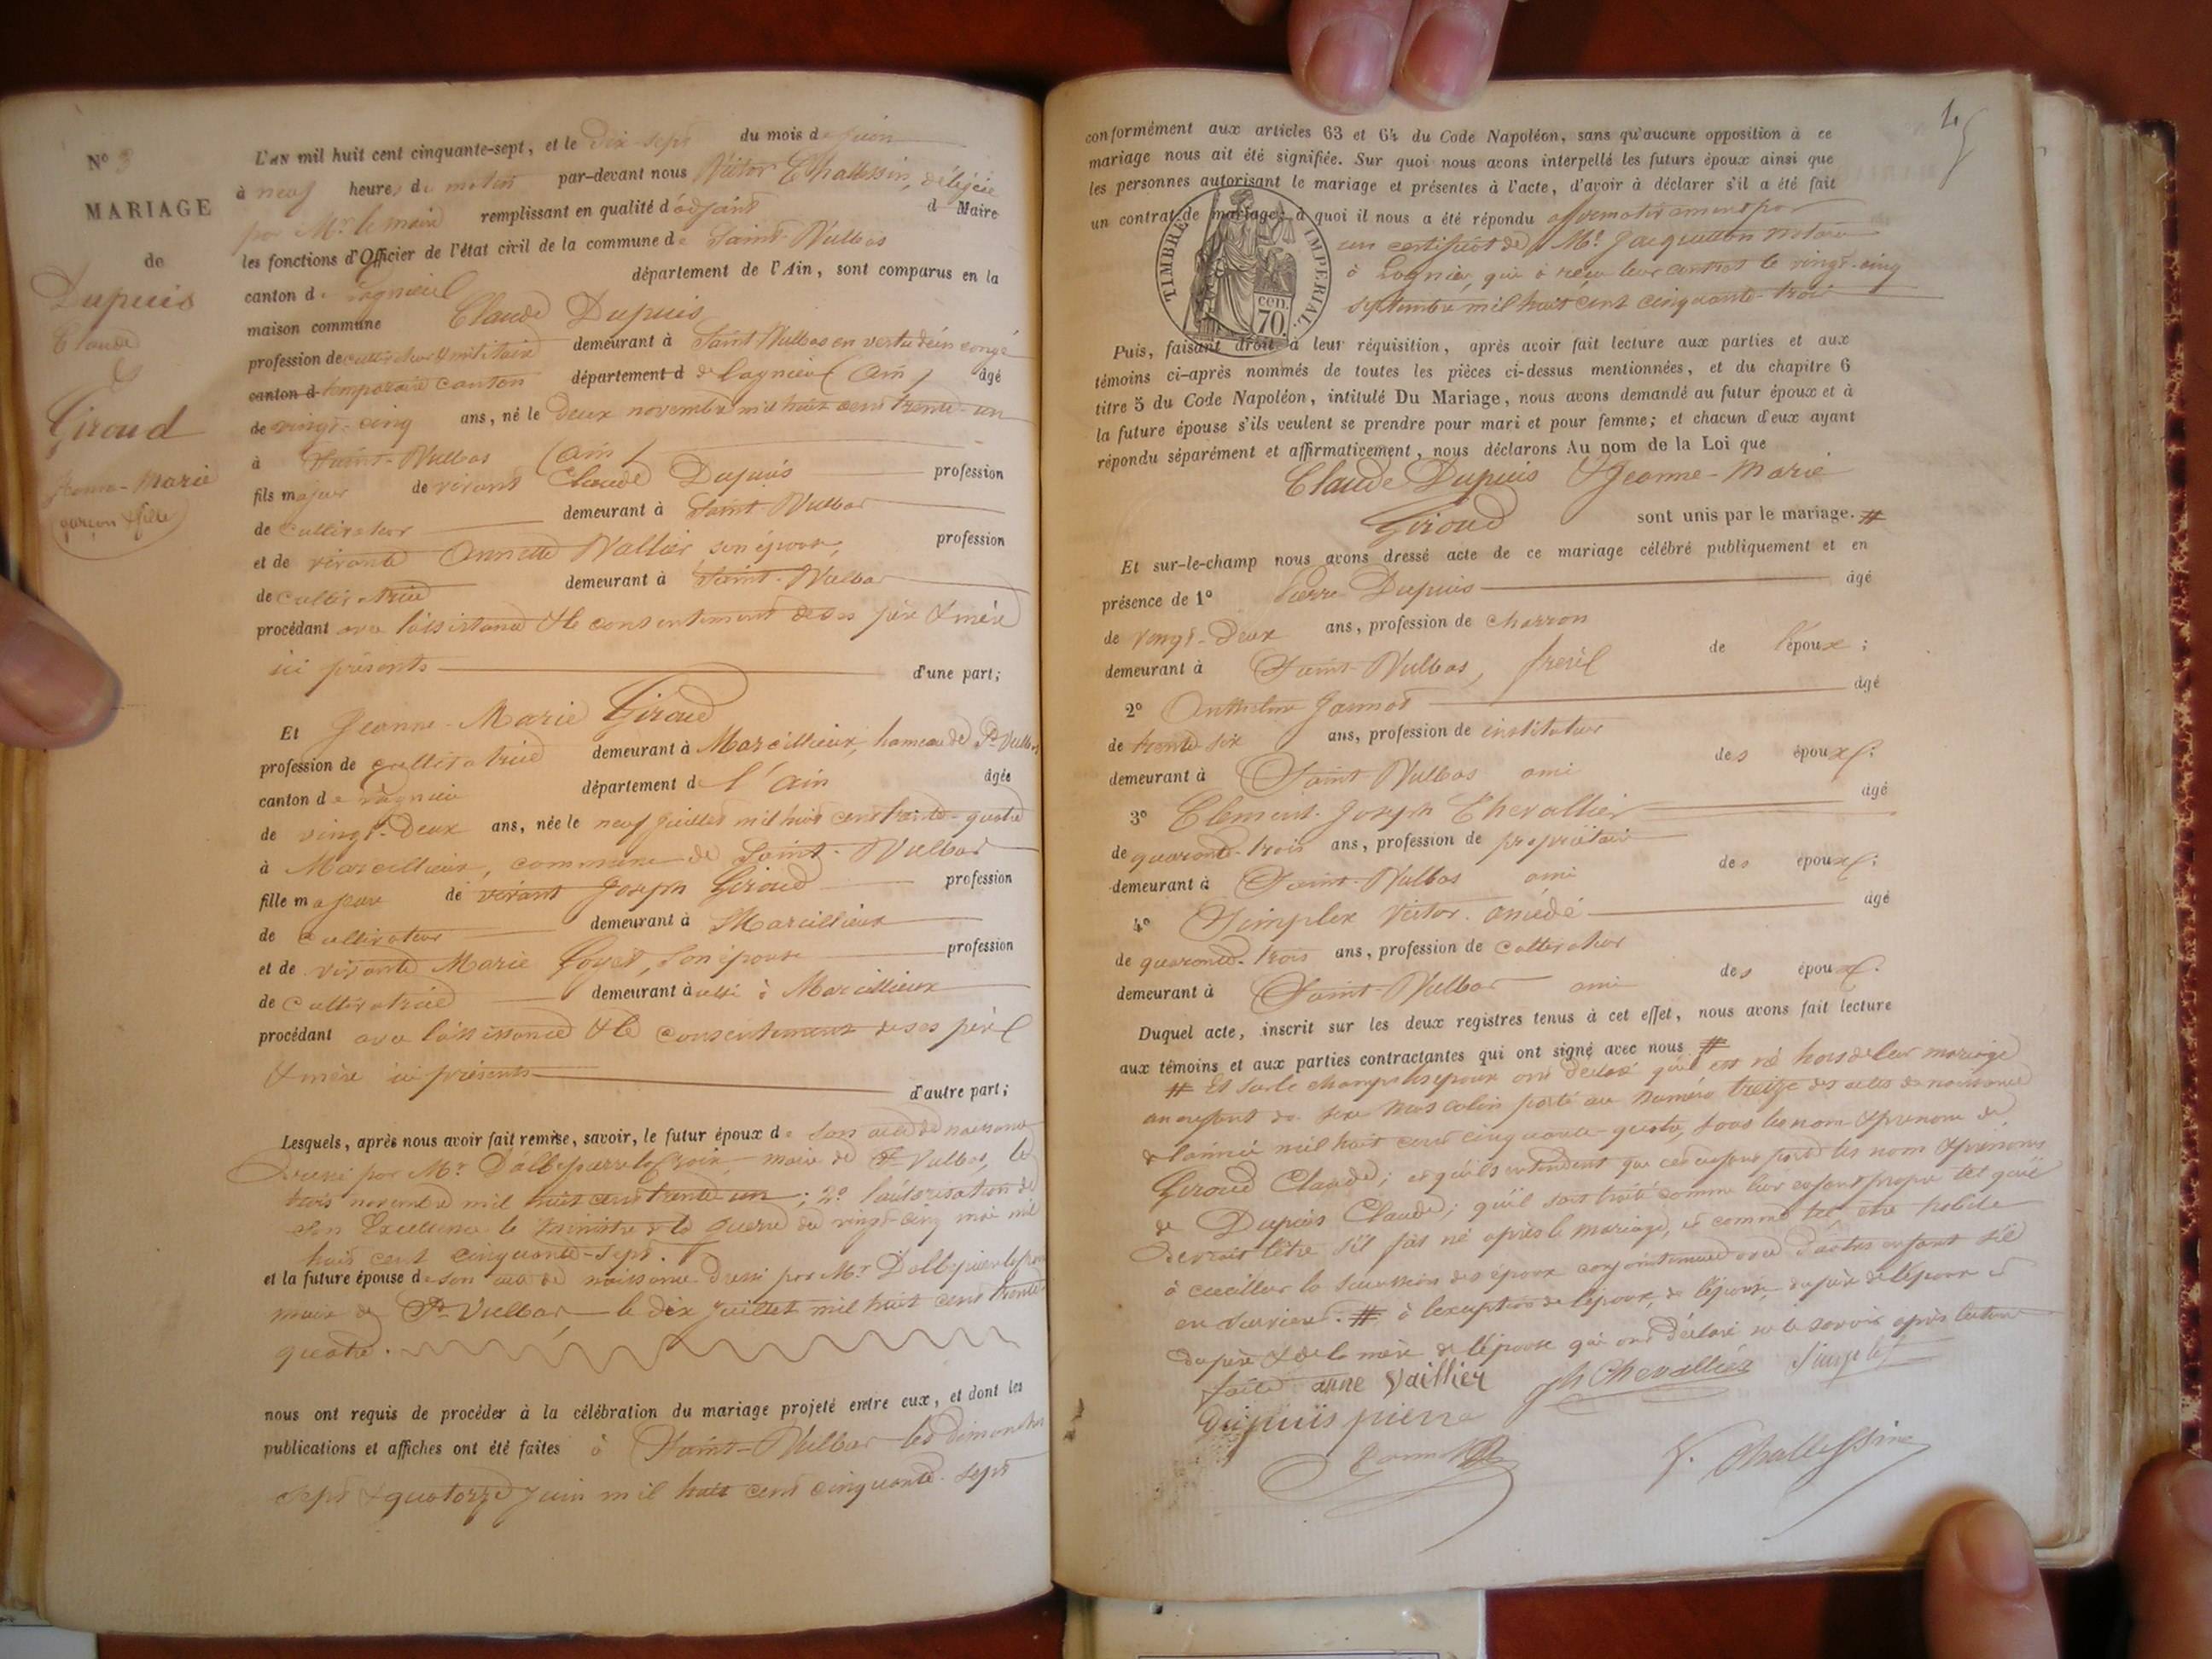 N° 3
MARIAGE
de
Dupuis
Claude
&
Giroud
Jeanne-Marie
(garçon & fille)
L'an mil huit cent cinquante-sept, et le dix-sept du mois de juin
à neuf heures du matin par-devant nous Victor Challessin, délégué
par Mr le maire remplissant en qualité d'adjoint d Maire
les fonctions d'Officier de l'état civil de la commune de Saint-Vulbas
canton de Lagnieu département de l'Ain, sont comparus en la
maison commune Claude Dupuis
profession de cultivateur & militaire demeurant à Saint-Vulbas en vertu d'un congé
canton d temporaire canton département d de Lagnieu (Ain) âgé
de vingt-cinq ans, né le deux novembre mil huit cent trente-un
à Saint-Vulbas (Ain)
fils majeur de vivant Claude Dupuis profession
de cultivateur demeurant à Saint-Vulbas
et de vivante Annette Vallier son épouse, profession
de cultivatrice demeurant à Saint-Vulbas
procédant avec l'assistance & le consentement de ses père & mère
ici présents d'une part;
Et Jeanne-Marie Giroud
profession de cultivatrice demeurant à Marcillieux, hameau de St Vulbas
canton de Lagnieu département de l'Ain âgée
de vingt-deux ans, née le neuf juillet mil huit cent trente-quatre
à Marcillieux, commune de Saint-Vulbas
fille majeure de vivant Joseph Giroud profession
de cultivateur demeurant à Marcillieux
et de vivante Marie Goyet, son épouse profession
de cultivatrice demeurant aussi à Marcillieux
procédant avec l'assistance & le consentement de ses père
& mère ici présents d'autre part;
Lesquels, après nous avoir fait remise, savoir, le futur époux de son acte de naissance
dressé par Mr maire de St Vulbas, le
trois novembre mil huit cent trente un; 2° l'autorisation de
son Excellence le ministre de la guerre du vingt-cinq mai mil
huit cent cinquante-sept.
et la future épouse de son acte de naissance dressé par Mr
maire de St Vulbas, le dix juillet mil huit cent trente
quatre.
nous ont requis de procéder à la célébration du mariage projeté entre eux, et dont les
publications et affiches ont été faites à Saint-Vulbas les dimanches
sept & quatorze juin mil huit cent cinquante-sept
conformément aux articles 63 et 64 du Code Napoléon, sans qu'aucune opposition à ce
mariage nous ait été signifiée. Sur quoi nous avons interpellé les futurs époux ainsi que
les personnes autorisant le mariage et présentes à l'acte, d'avoir à déclarer s'il a été fait
un contrat de mariage; à quoi il nous a été répondu affirmativement par
un certificat de Mr Jacquemon notaire
à Lagnieu, qui a reçu leur contrat le vingt-cinq
septembre mil huit cent cinquante-trois
TIMBRE IMPÉRIAL.
cen. 70.
Puis, faisant droit à leur réquisition, après avoir fait lecture aux parties et aux
témoins ci-après nommés de toutes les pièces ci-dessus mentionnées, et du chapitre 6
titre 5 du Code Napoléon, intitulé Du Mariage, nous avons demandé au futur époux et à
la future épouse s'ils veulent se prendre pour mari et pour femme; et chacun d'eux ayant
répondu séparément et affirmativement, nous déclarons Au nom de la Loi que
Claude Dupuis & Jeanne-Marie
Giroud sont unis par le mariage. #
Et sur-le-champ nous avons dressé acte de ce mariage célébré publiquement et en
présence de 1° Pierre Dupuis âgé
de vingt-deux ans, profession de charron
demeurant à Saint-Vulbas, frère de l'époux;
2° Anthelme Jannot âgé
de trente six ans, profession de instituteur
demeurant à Saint-Vulbas ami des époux;
3° Clément-Joseph Chevallier âgé
de quarante-trois ans, profession de propriétaire
demeurant à Saint-Vulbas ami des époux;
4° Simplex Victor Amédé âgé
de quarante-trois ans, profession de cultivateur
demeurant à Saint-Vulbas ami des époux.
Duquel acte, inscrit sur les deux registres tenus à cet effet, nous avons fait lecture
aux témoins et aux parties contractantes qui ont signé avec nous #
# Et sur le champ les époux ont déclaré qu'il est né hors de leur mariage
un enfant du sexe masculin porté au numéro treize des actes de naissance
de l'année mil huit cent cinquante-quatre, sous les nom & prénom de
Giroud Claude; et qu'ils entendent que cet enfant porte les nom & prénoms
de Dupuis Claude; qu'il soit traité comme leur enfant propre tel qu'il
devrait l'être s'il fût né après le mariage, et comme tel être habile
à cueillir la succession des époux conjointement avec d'autres enfant s'il
en survient. # à l'exception de l'époux, de l'épouse, du père de l'époux et
du père & de la mère de l'épouse qui ont déclaré ne le savoir après lecture
faite anne Vaillier Jh Chevallier Simplex
Dupuis pierre
Jannot V. Challessin